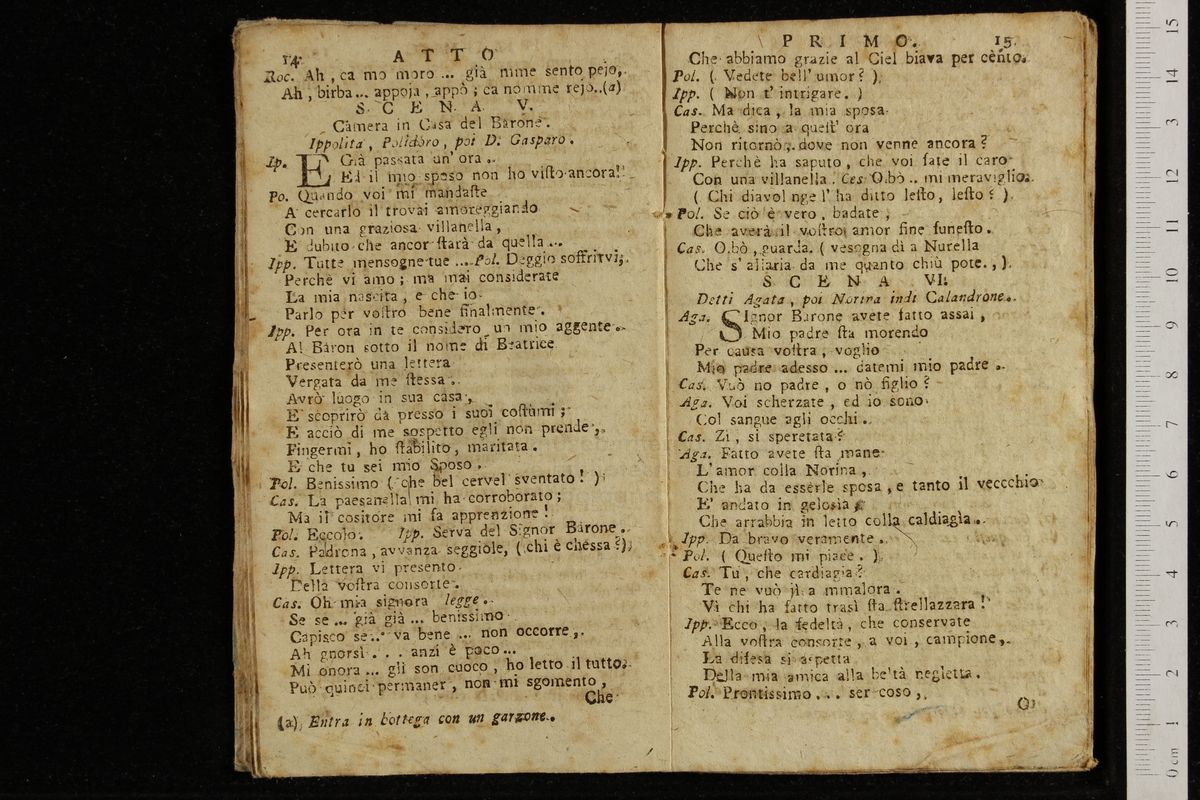 14 ATTO
Roc. Ah, ca mo moro ... già mme sento pejo,
Ah, birba... appoja, appò; ca nomme rejo..(a)
SCENA V.
Camera in Casa del Barone.
Ippolita, Polidoro, poi D. Gasparo.
Ip. E Già passata un' ora..
Ed il mio sposo non ho visto ancora!
Po. Quando voi mi mandaste
A cercarlo il trovai amoreggiando
Con una graziosa villanella,
E dubito che ancor starà da quella...
Ipp. Tutte mensogne tue ... Pol. Deggio soffrirvi,
Perchè vi amo; ma mai considerate
La mia nascita, e che io
Parlo per vostro bene finalmente.
Ipp. Per ora in te considero un mio aggente..
Al Baron sotto il nome di Beatrice
Presenterò una lettera
Vergata da me stessa..
Avrò luogo in sua casa,
E scoprirò da presso i suoi costumi;
E acciò di me sospetto egli non prende,
Fingermi, ho stabilito, maritata.
E che tu sei mio Sposo.
Pol. Benissimo (che bel cervel sventato!)
Cas. La paesanella mi ha corroborato;
Ma il cositore mi fa apprenzione!
Pol. Eccolo. Ipp. Serva del Signor Barone.
Cas. Padrona, avvanza seggiole, (chi è chessa?)
Ipp. Lettera vi presento.
Della vostra consorte.
Cas. Oh mia signora legge.
Se se ... già già ... benissimo
Capisco se... va bene ... non occorre,
Ah gnorsì... anzi è poco...
Mi onora ... gli son cuoco, ho letto il tutto.
Può quinci permaner, non mi sgomento,
Che
(a) Entra in bottega con un garzone.
PRIMO. 15
Che abbiamo grazie al Ciel biava per cento.
Pol. (Vedete bell' umor?)
Ipp. (Non t' intrigare.)
Cas. Ma dica, la mia sposa
Perchè sino a quest' ora
Non ritornò, dove non venne ancora?
Ipp. Perchè ha saputo, che voi fate il caro
Con una villanella. Cas O.bò.. mi meraviglio.
(Chi diavol nge l' ha ditto lesto, lesto?)
Pol. Se ciò è vero, badate;
Che averà il vostro amor fine funesto.
Cas. O.bò, guarda. (vesogna dì a Nurella
Che s' allaria da me quanto chiù pote.,)
SCENA VI.
Detti Agata, poi Norina indi Calandrone.
Aga. SIgnor Barone avete fatto assai,
Mio padre sta morendo
Per causa vostra, voglio
Mio padre adesso ... datemi mio padre.
Cas. Vuò no padre, o nò figlio?
Aga. Voi scherzate, ed io sono
Col sangue agli occhi.
Cas. Zi, si speretata?
Aga. Fatto avete sta mane
L' amor colla Norina,
Che ha da esserle sposa, e tanto il veccchio
E' andato in gelosia,
Che arrabbia in letto colla caldiagìa.
Ipp. Da bravo veramente.
Pol. (Questo mi piace.)
Cas. Tu, che cardiagia?
Te ne vuò jì a mmalora.
Vì chi ha fatto trasì sta strellazzara!
Ipp. Ecco, la fedeltà, che conservate
Alla vostra consorte, a voi, campione,
La difesa si aspetta
Della mia amica alla beltà negletta.
Pol. Prontissimo... ser coso,